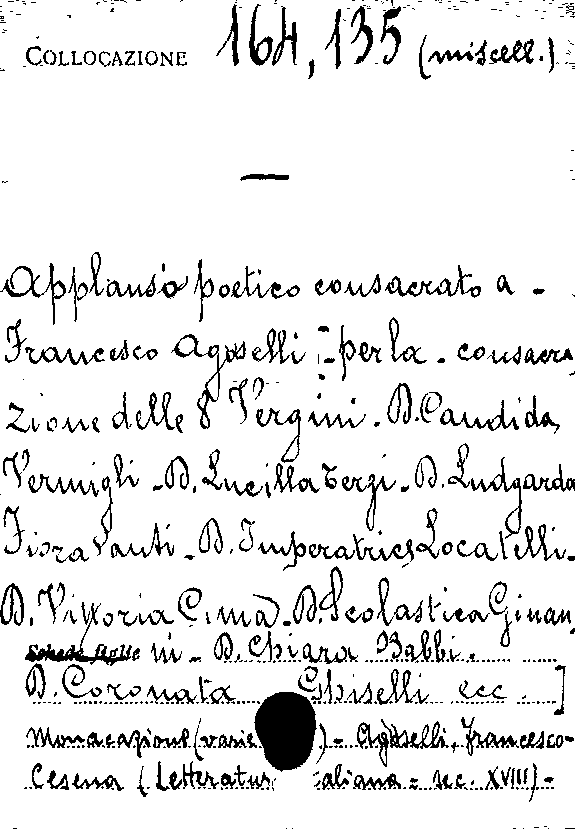 COLLOCAZIONE 164,135 (miscell.)
—
Applauso poetico consacrato a -
Francesco Agoselli - per la - consacra
zione delle 8 Vergini - D. Candida
Vermigli - D. Lucilla Terzi - D. Ludgarda
Fioravanti - D. Imperatrice Locatelli -
D. Vittoria Cima - D. Scolastica Ginan
ni - D. Chiara Babbi.
D. Coronata Ghiselli ecc. ]
Monacazione (varie ) - Agoselli, Francesco -
Cesena (Letteratur aliana - sec. XVIII) -